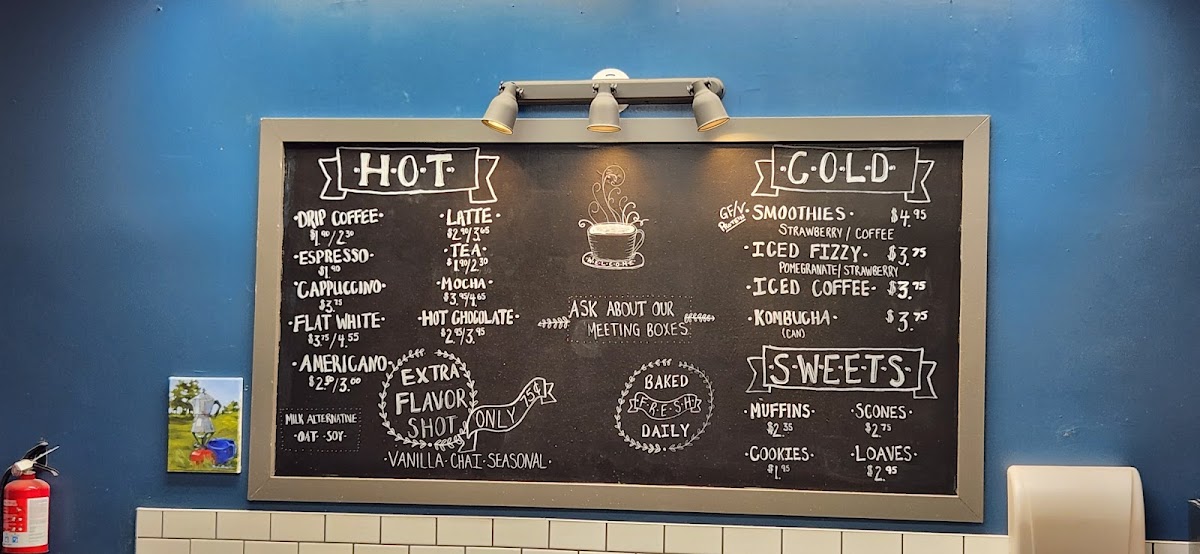 ·H·O·T·
·DRIP COFFEE·
$1.90/2.30
·ESPRESSO·
$1.90
·CAPPUCCINO·
$3.75
·FLAT WHITE·
$3.75/4.55
·AMERICANO·
$2.50/3.00
MILK ALTERNATIVE
·OAT·SOY·
·LATTE·
$2.90/3.65
·TEA·
$1.90/2.30
·MOCHA·
$3.95/4.65
·HOT CHOCOLATE·
$2.95/3.95
EXTRA
FLAVOR
SHOT
ONLY 75¢
·VANILLA·CHAI·SEASONAL·
WELCOME
ASK ABOUT OUR
MEETING BOXES
BAKED
F·R·E·S·H
DAILY
·C·O·L·D·
GF/V
PROTEIN
·SMOOTHIES· $4.95
STRAWBERRY/COFFEE
·ICED FIZZY· $3.75
POMEGRANATE/STRAWBERRY
·ICED COFFEE· $3.75
·KOMBUCHA· $3.75
(CAN)
·S·W·E·E·T·S·
·MUFFINS·
$2.35
·COOKIES·
$1.95
·SCONES·
$2.75
·LOAVES·
$2.95